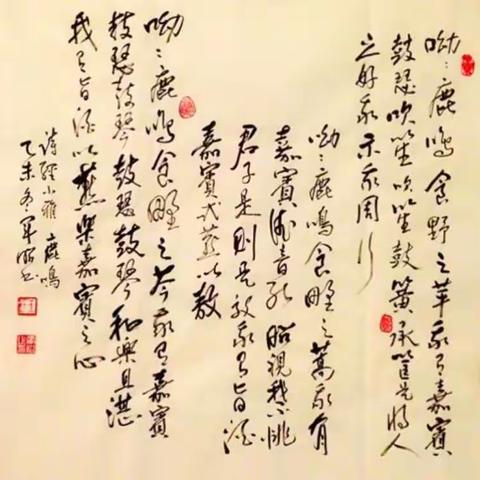 呦〻鹿鳴食野之苹我有嘉賓
鼓瑟吹笙吹笙鼓簧承筐是將人
之好我示我周行
呦〻鹿鳴食野之蒿我有
嘉賓德音孔昭視民不恌
君子是則是效我有旨酒
嘉賓式燕以敖
呦〻鹿鳴食野之芩我有嘉賓
鼓瑟鼓琴鼓瑟鼓琴和樂且湛
我有旨酒以燕樂嘉賓之心
詩經小雅 鹿鳴
乙未冬軍